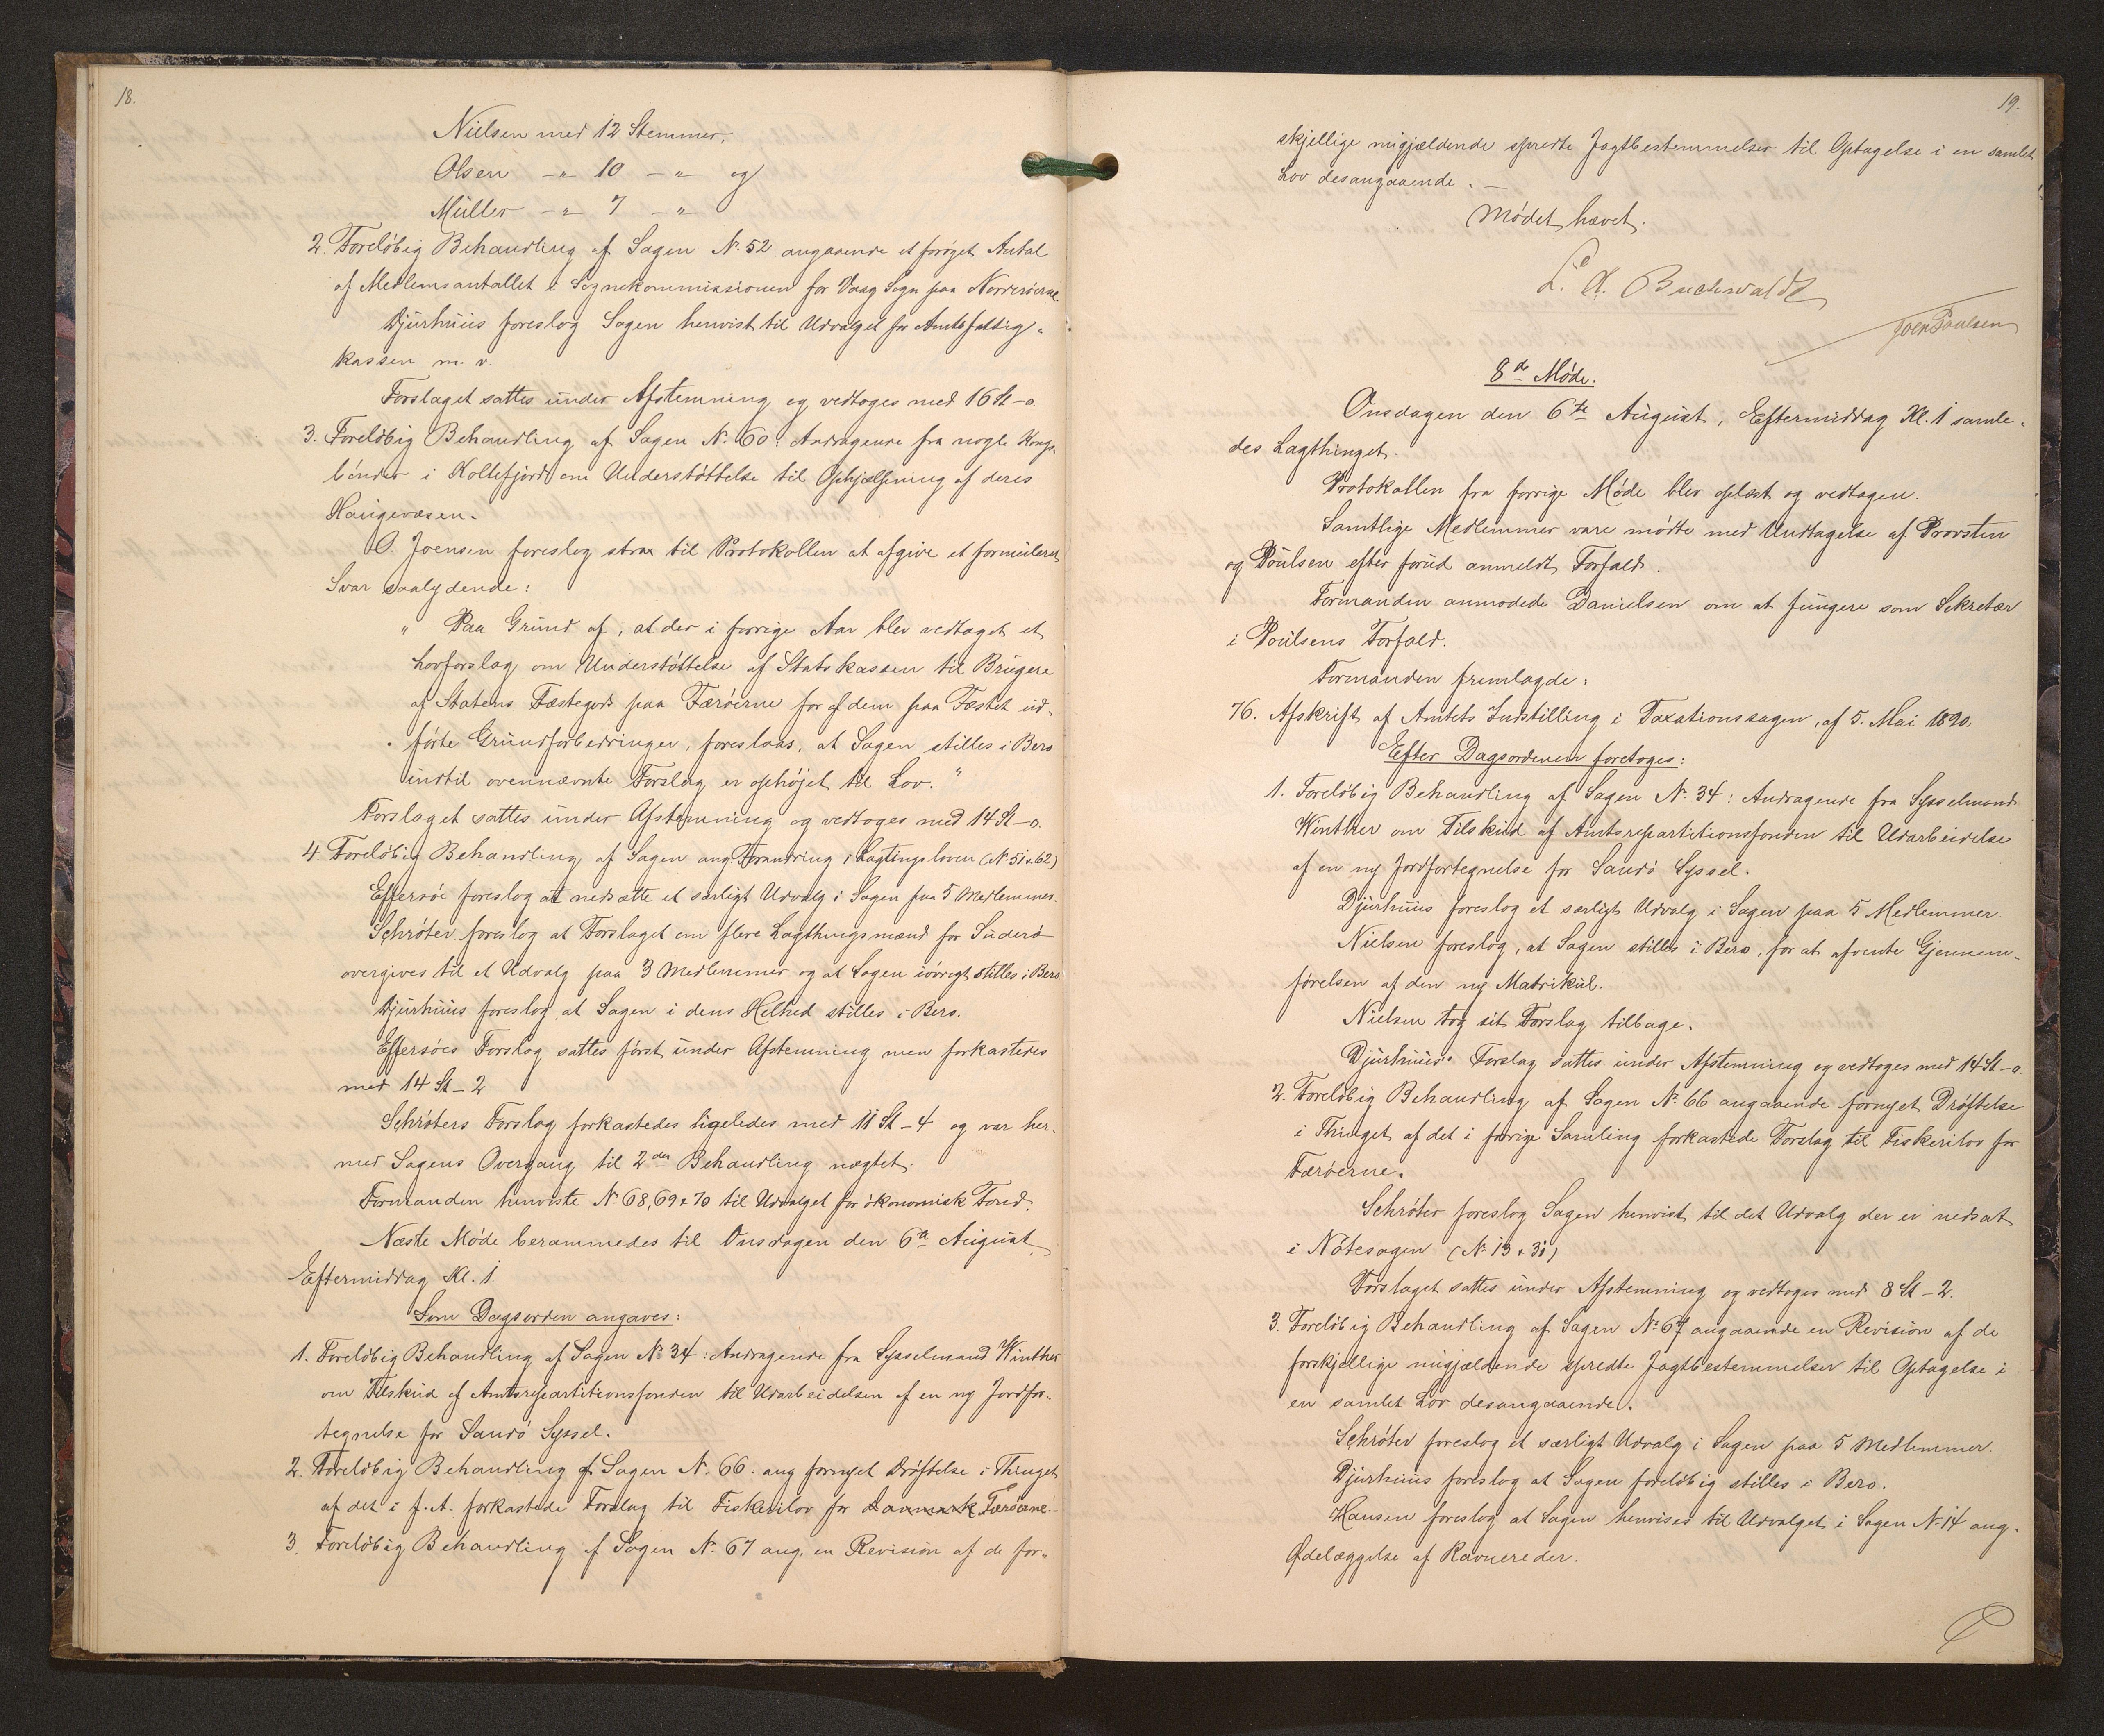 18.
Nielsen med 12 Stemmer.
Olsen -"- 10 -"- og
Müller -"- 7 -"-
2. Foreløbig Behandling af Sagen No. 52 angaaende et forøget Antal
af Medlemsantallet i Sognekommissionen for Vaag Sogn paa Norderøerne
Djurhuus foreslog Sagen henvist til Udvalget for Amtsfattig-
kassen m. v.
Forslaget sattes under Afstemning og vedtoges med 16 St-o.
3. Foreløbig Behandling af Sagen No. 60: Andragende fra nogle Konge-
bønder i Kollefjord om Understøttelse til Ophjælpning af deres
Haugevæsen.
O. Joensen foreslog strax til Protokollen at afgive et formuleret
Svar saalydende:
" Paa Grund af, at der i forrige Aar blev vedtaget et
Lovforslag om Understøttelse af Statskassen til Brugere
af Statens Fæstegods paa Færøerne for af dem paa Fæstet ud-
førte Grundforbedringer, foreslaas, at Sagen stilles i Bero
indtil ovennævnte Forslag er ophøjet til Lov. "
Forslaget sattes under Afstemning og vedtoges med 14 St-o.
4. Foreløbig Behandling af Sagen ang. Forandring i Lagtingsloven (No. 51 & 62)
Effersøe foreslog at nedsætte et særligt Udvalg i Sagen paa 5 Medlemmer.
Schrøter foreslog at Forslaget om flere Lagthingsmænd for Suderø
overgives til et Udvalg paa 3 Medlemmer og at Sagen iøvrigt stilles i Bero
Djurhuus foreslog at Sagen i dens Helhed stilles i Bero.
Effersøes Forslag sattes først under Afstemning men forkastedes
med 14 St-2
Schrøters Forslag forkastedes ligeledes med 11 St-4 og var her-
med Sagens Overgang til 2den Behandling nægtet.
Formanden henviste No. 68, 69 & 70 til Udvalget for økonomisk Fond.
Næste Møde berammedes til Onsdagen den 6te August
Eftermiddag Kl. 1.
Som Dagsorden angaves:
1. Foreløbig Behandling af Sagen No. 34: Andragende fra Sysselmand Winther
om Tilskud af Amtsrepartitionsfonden til Udarbeidelsen af en ny Jordfor-
tegnelse for Sandø Syssel.
2. Foreløbig Behandling af Sagen No. 66: ang fornyet Drøftelse i Thinget
af det i f. A. forkastede Forslag til Fiskerilov for Danmark Færøerne.
3. Foreløbig Behandling af Sagen No. 67 ang. en Revision af de for-
19.
skjellige nugjældende spredte Jagtbestemmelser til Optagelse i en samlet
Lov desangaaende. -
Mødet hævet.
L. A. Buchwaldt
Joen Poulsen
8de Møde.
Onsdagen den 6te August, Eftermiddag Kl. 1 samle-
des Lagthinget.
Protokollen fra forrige Møde blev oplæst og vedtagen.
Samtlige Medlemmer vare mødte med Undtagelse af Provsten
og Poulsen efter forud anmeldt Forfald.
Formanden anmodede Danielsen om at fungere som Sekretær
i Poulsens Forfald.
Formanden fremlagde:
76. Afskrift af Amtets Indstilling i Taxationssagen, af 5. Mai 1890.
Efter Dagsordenen foretoges:
1. Foreløbig Behandling af Sagen No. 34: Andragende fra Sysselmand
Winther om Tilskud af Amtsrepartitionsfonden til Udarbeidelse
af en ny Jordfortegnelse for Sandø Syssel.
Djurhuus foreslog et særligt Udvalg i Sagen paa 5 Medlemmer.
Nielsen foreslog, at Sagen stilles i Bero, for at afvente Gjennem-
førelsen af den ny Matrikul.
Nielsen tog sit Forslag tilbage.
Djurhuus's Forslag sattes under Afstemning og vedtoges med 14 St-o.
2. Foreløbig Behandling af Sagen No. 66 angaaende fornyet Drøftelse
i Thinget af det i forrige Samling forkastede Forslag til Fiskerilov for
Færøerne.
Schrøter foreslog Sagen henvist til det Udvalg der er nedsat
i Notesagen (No. 13 & 31)
Forslaget sattes under Afstemning og vedtoges med 8 St-2.
3. Foreløbig Behandling af Sagen No. 67 angaaende en Revision af de
forskjellige nugjældende spredte Jagtbestemmelser til Optagelse i
en samlet Lov desangaaende.
Schrøter foreslog et særligt Udvalg i Sagen paa 5 Medlemmer.
Djurhuus foreslog at Sagen foreløbig stilles i Bero.
Hansen foreslog at Sagen henvises til Udvalget i Sagen No. 14 ang.
Ødelæggelse af Ravnereder.